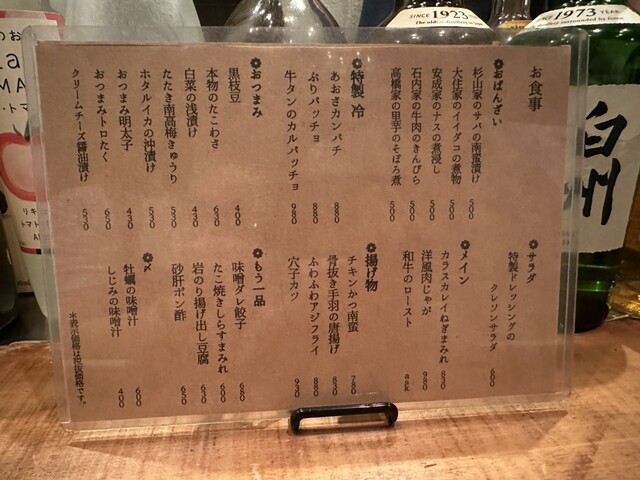 お食事
❁おばんざい
杉山家のサバの南蛮漬け 500
大住家のイイダコの煮物 500
安成家のナスの煮浸し 500
石内家の牛肉のきんぴら 500
高橋家の里芋のそぼろ煮 500
❁特製 冷
あおさカンパチ 880
ぶりパッチョ 880
牛タンのカルパッチョ 980
❁おつまみ
黒枝豆 400
本物のたこわさ 630
白菜の浅漬け 430
たたき南高梅きゅうり 530
ホタルイカの沖漬け 530
おつまみ明太子 430
おつまみトロたく 650
クリームチーズ醤油漬け 530
❁サラダ
特製ドレッシングの
クレソンサラダ 600
❁メイン
カラスカレイねぎまみれ 830
洋風肉じゃが 980
和牛のロースト ask
❁揚げ物
チキンかつ南蛮 780
骨抜き手羽の唐揚げ 830
ふわふわアジフライ 880
穴子カツ 930
❁もう一品
味噌ダレ餃子 680
たこ焼きしらすまみれ 600
岩のり揚げ出し豆腐 630
砂肝ポン酢 650
❁〆
牡蠣の味噌汁 600
しじみの味噌汁 400
※表示価格は税抜価格です。
SINCE 1923
1973 YEAR
白州